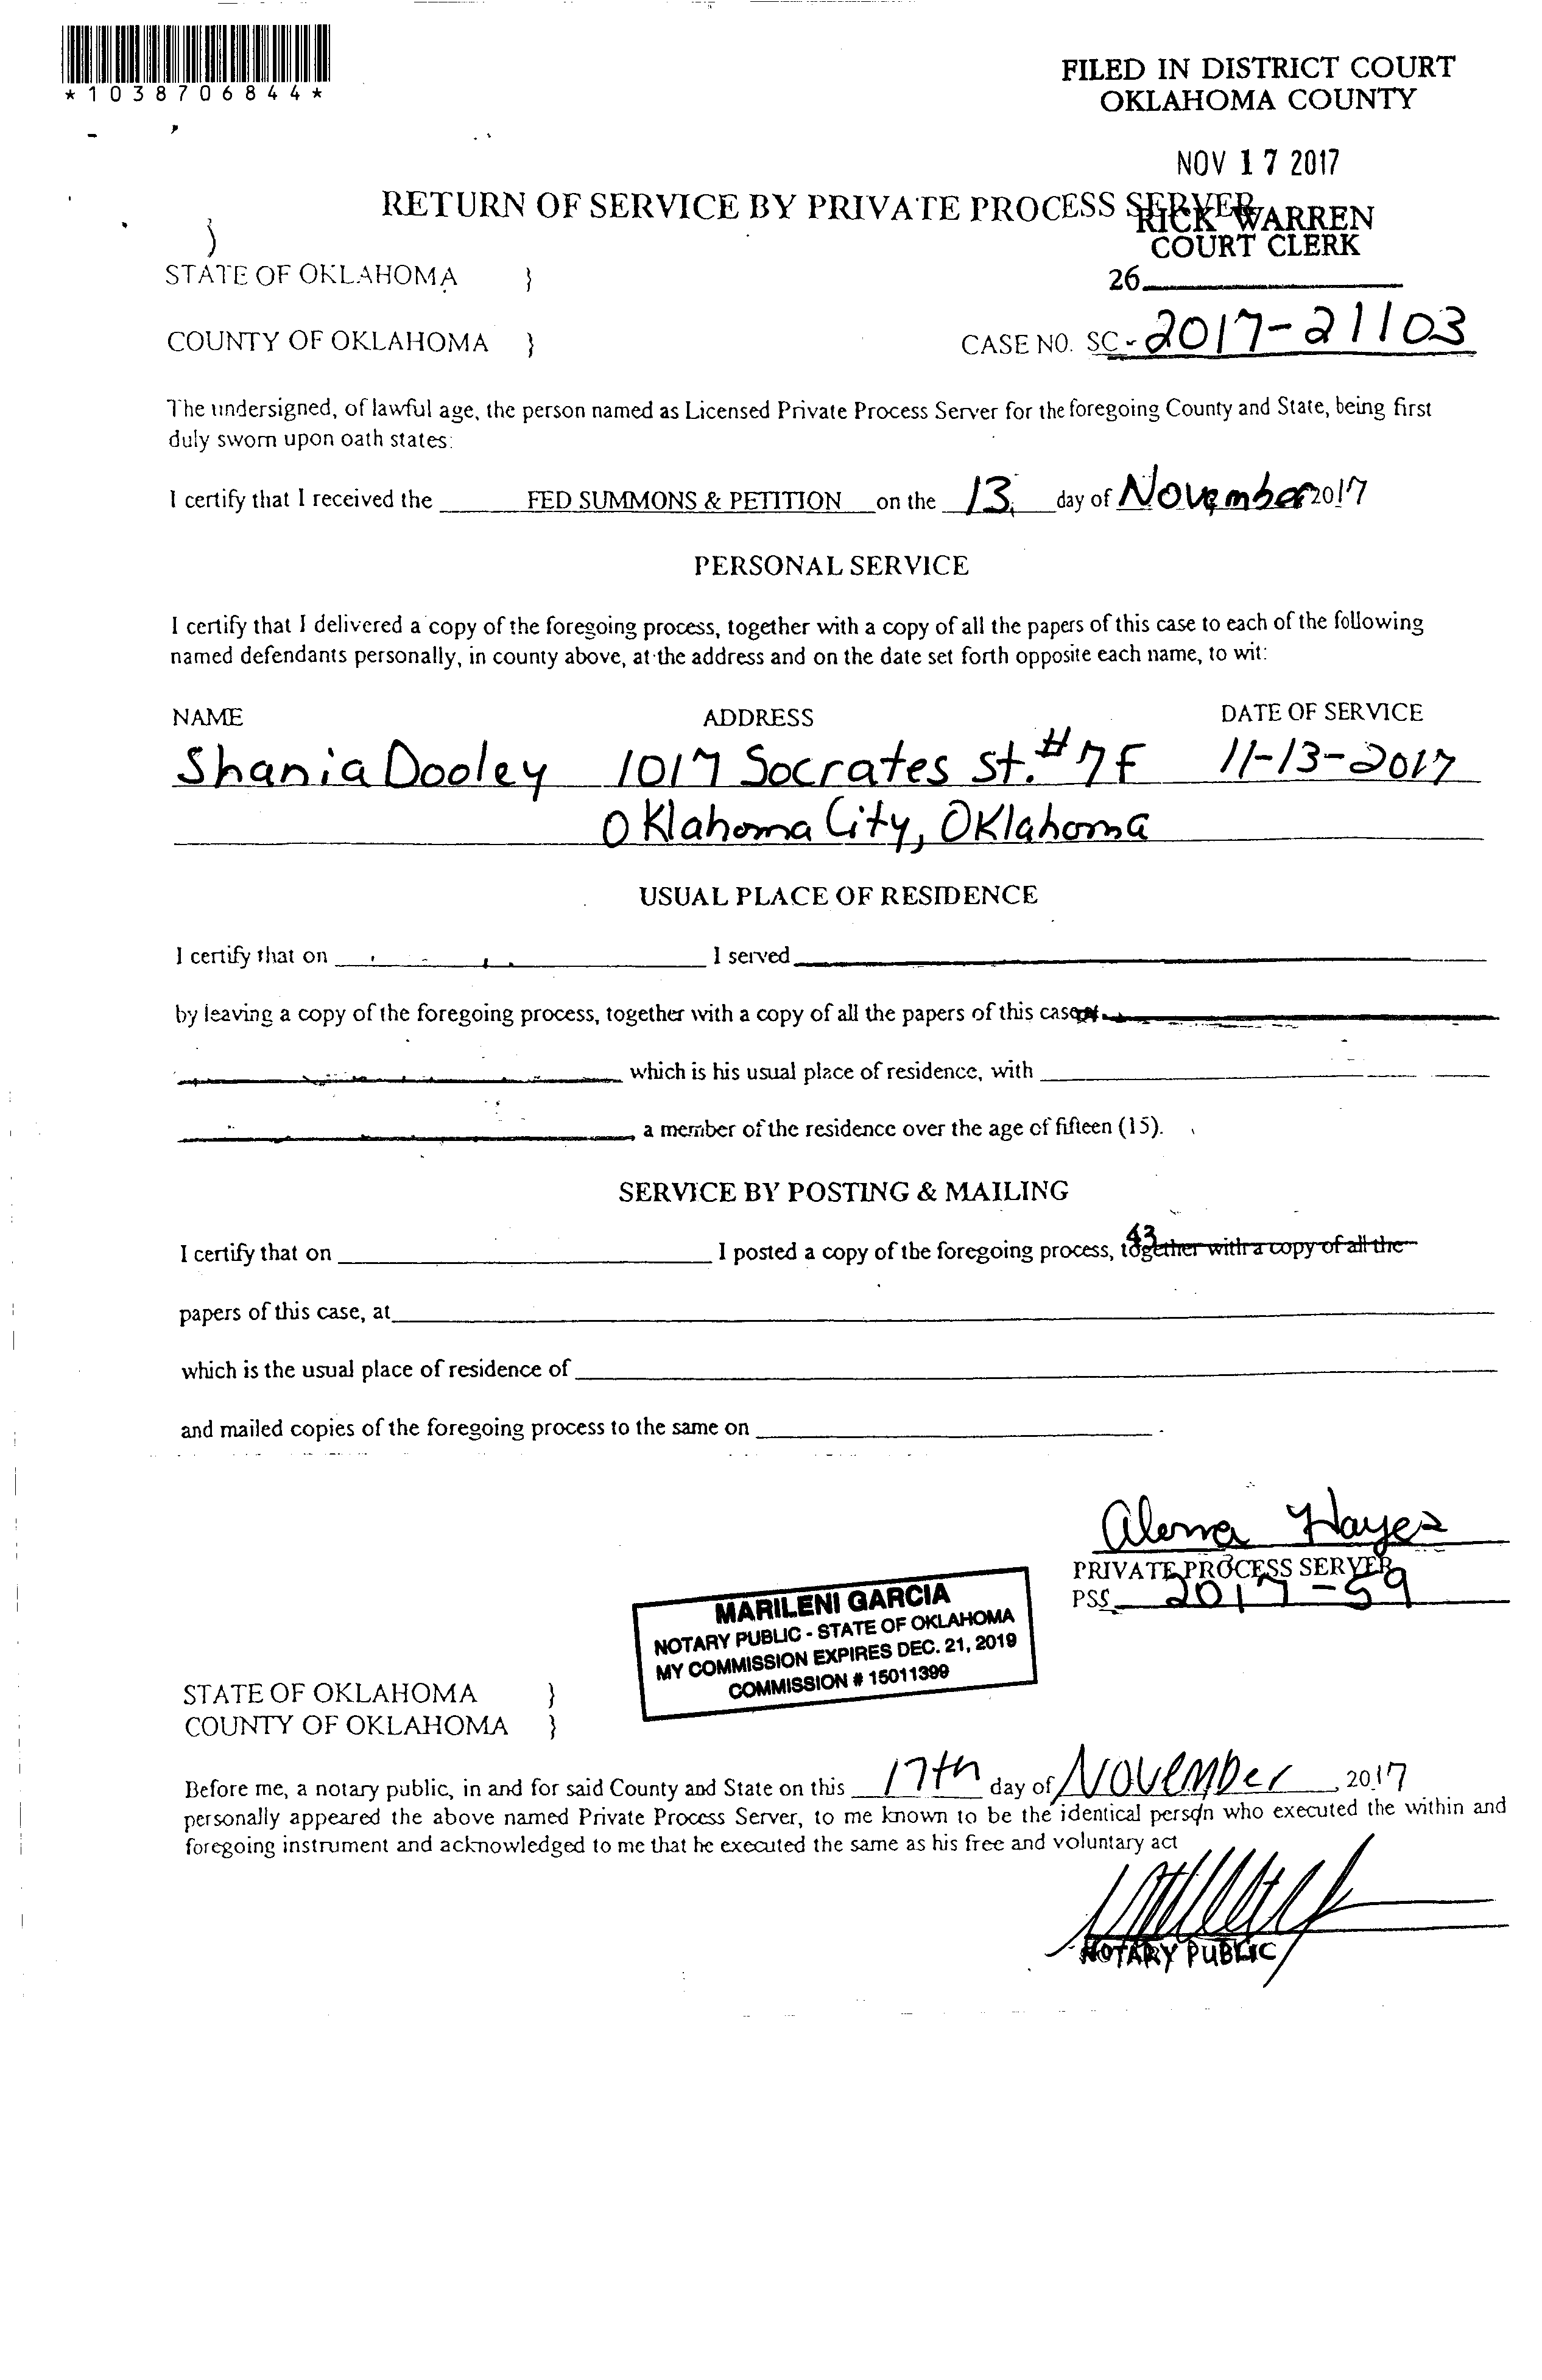 *1038706844*
FILED IN DISTRICT COURT
OKLAHOMA COUNTY
NOV 17 2017
RETURN OF SERVICE BY PRIVATE PROCESS SERVER
RICK WARREN
COURT CLERK
26
STATE OF OKLAHOMA }
COUNTY OF OKLAHOMA } CASE NO. SC-2017-21103
The undersigned, of lawful age, the person named as Licensed Private Process Server for the foregoing County and State, being first
duly sworn upon oath states:
I certify that I received the FED SUMMONS & PETITION on the 13 day of November 2017
PERSONAL SERVICE
I certify that I delivered a copy of the foregoing process, together with a copy of all the papers of this case to each of the following
named defendants personally, in county above, at the address and on the date set forth opposite each name, to wit:
NAME ADDRESS DATE OF SERVICE
Shania Dooley 1017 Socrates St. #7F 11-13-2017
Oklahoma City, Oklahoma
USUAL PLACE OF RESIDENCE
I certify that on I served
by leaving a copy of the foregoing process, together with a copy of all the papers of this case at
which is his usual place of residence, with
a member of the residence over the age of fifteen (15).
SERVICE BY POSTING & MAILING
43
I certify that on I posted a copy of the foregoing process, together with a copy of all the
papers of this case, at
which is the usual place of residence of
and mailed copies of the foregoing process to the same on .
Alena Hayes
PRIVATE PROCESS SERVER
PSS 2017-59
MARILENI GARCIA
NOTARY PUBLIC - STATE OF OKLAHOMA
MY COMMISSION EXPIRES DEC. 21, 2019
COMMISSION # 15011399
STATE OF OKLAHOMA }
COUNTY OF OKLAHOMA }
Before me, a notary public, in and for said County and State on this 17th day of November, 2017
personally appeared the above named Private Process Server, to me known to be the identical person who executed the within and
foregoing instrument and acknowledged to me that he executed the same as his free and voluntary act
NOTARY PUBLIC